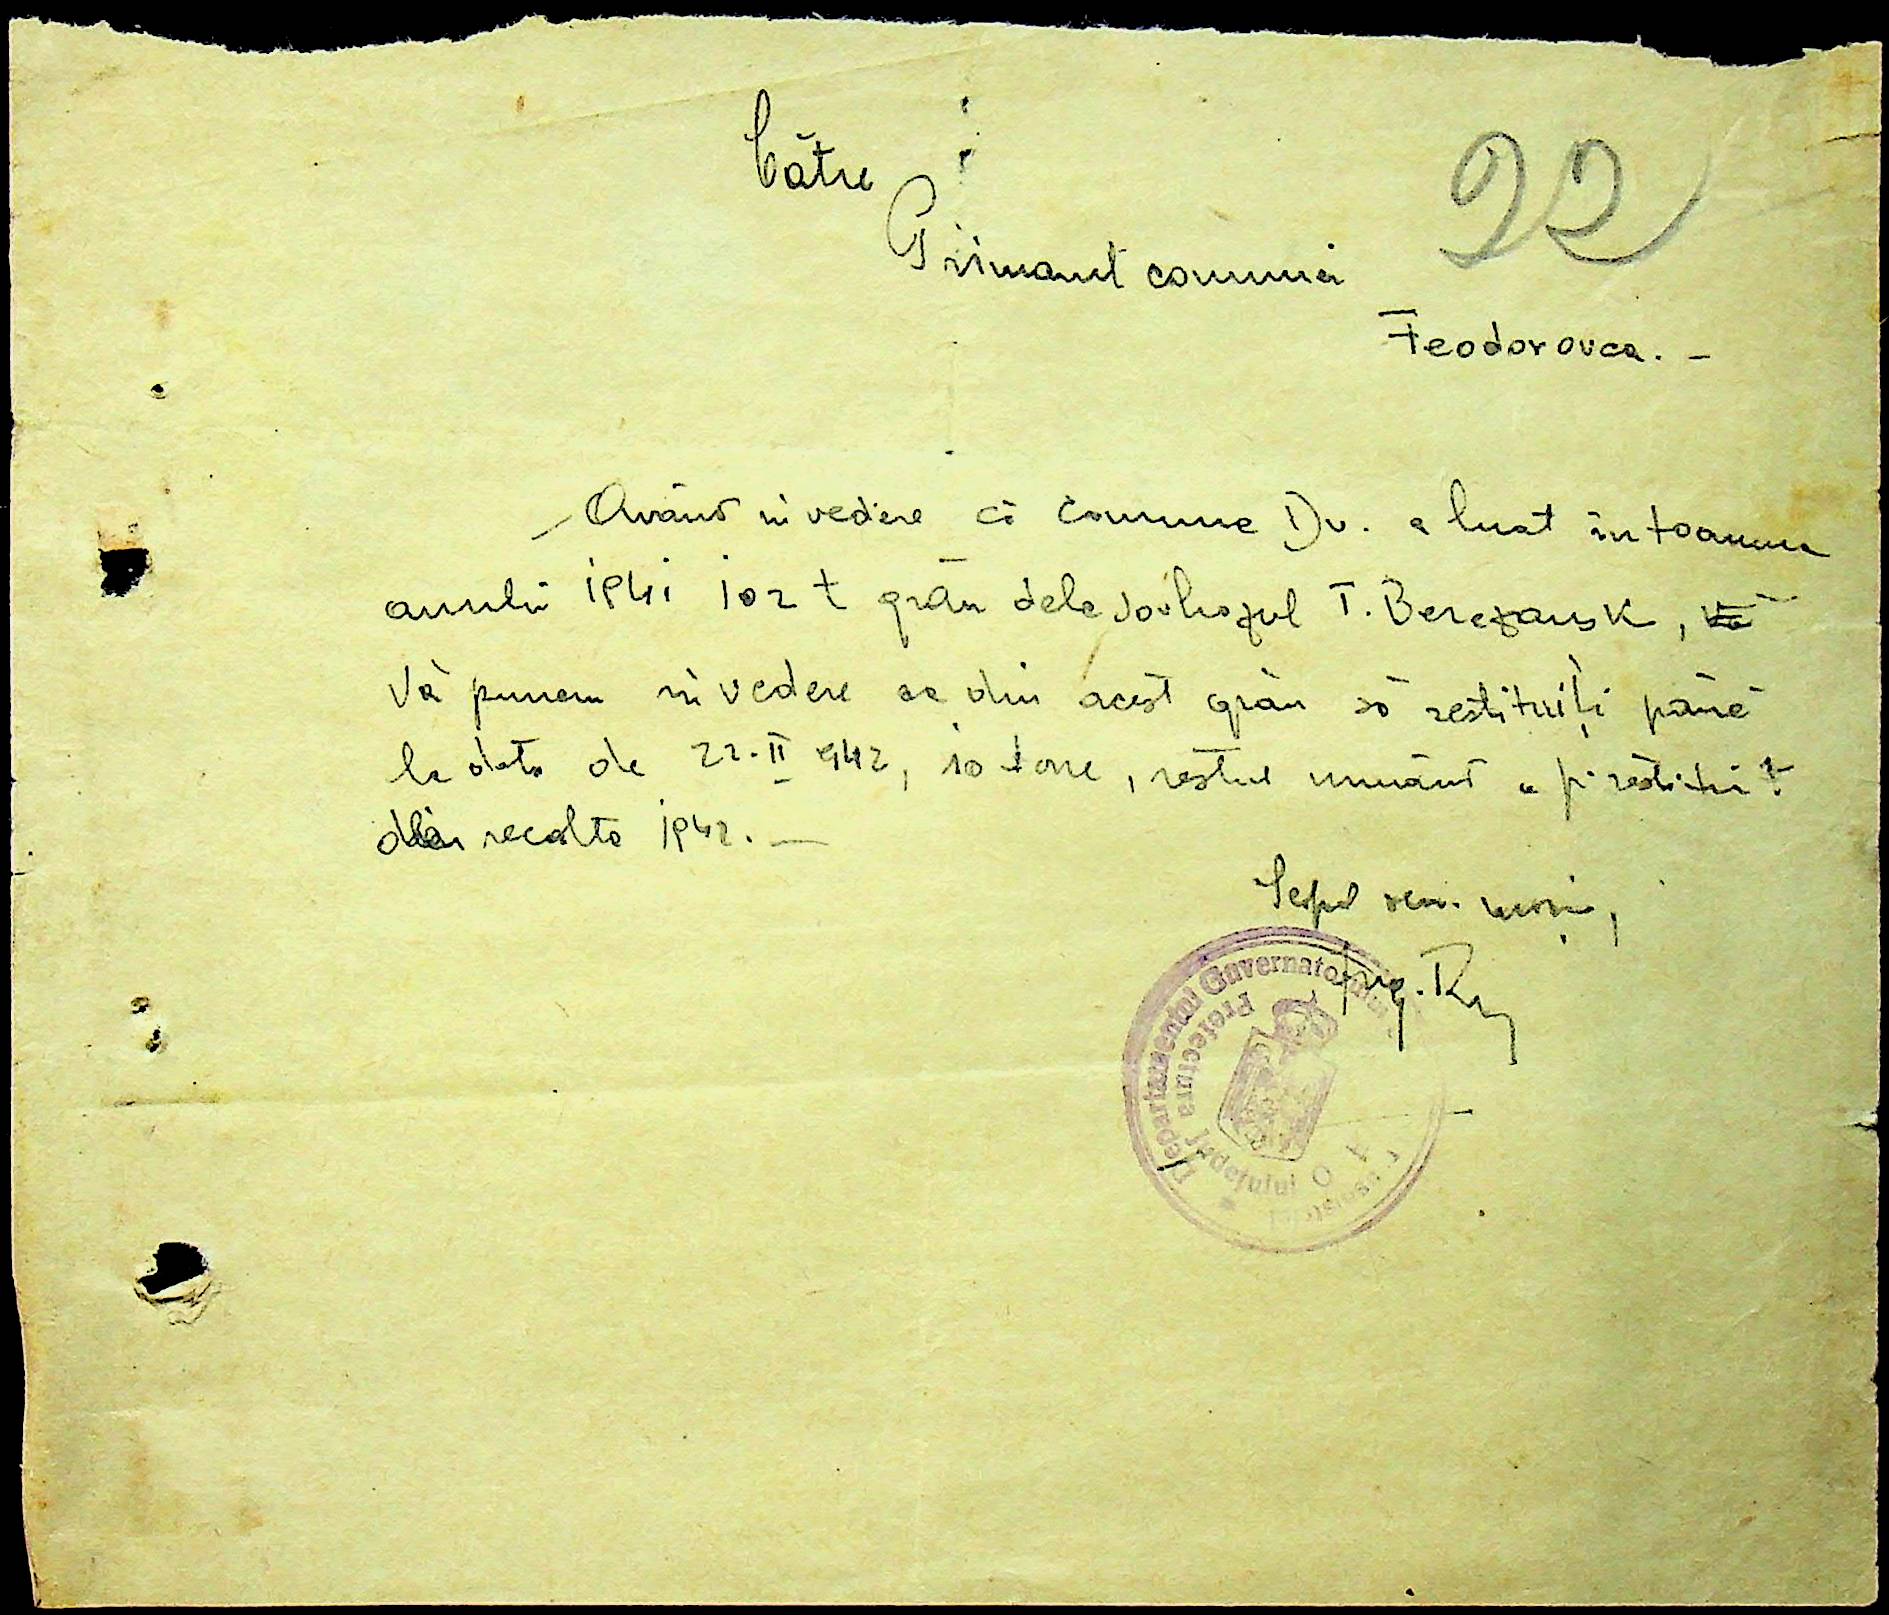 Către
22
Primarul comunei
Feodorovca. -
Având în vedere că comuna Dv. a luat în toamna
anului 1941 102 t grân dela sovhozul T. Berezansk,
Vă punem în vedere ca din acest grân să restituiți până
la data de 22.II 942, 10 tone, restul urmând a fi restituit
din recolta 1942. —
Șeful
Ing.
Departamentul Guvernatorului
Prefectura Județului O